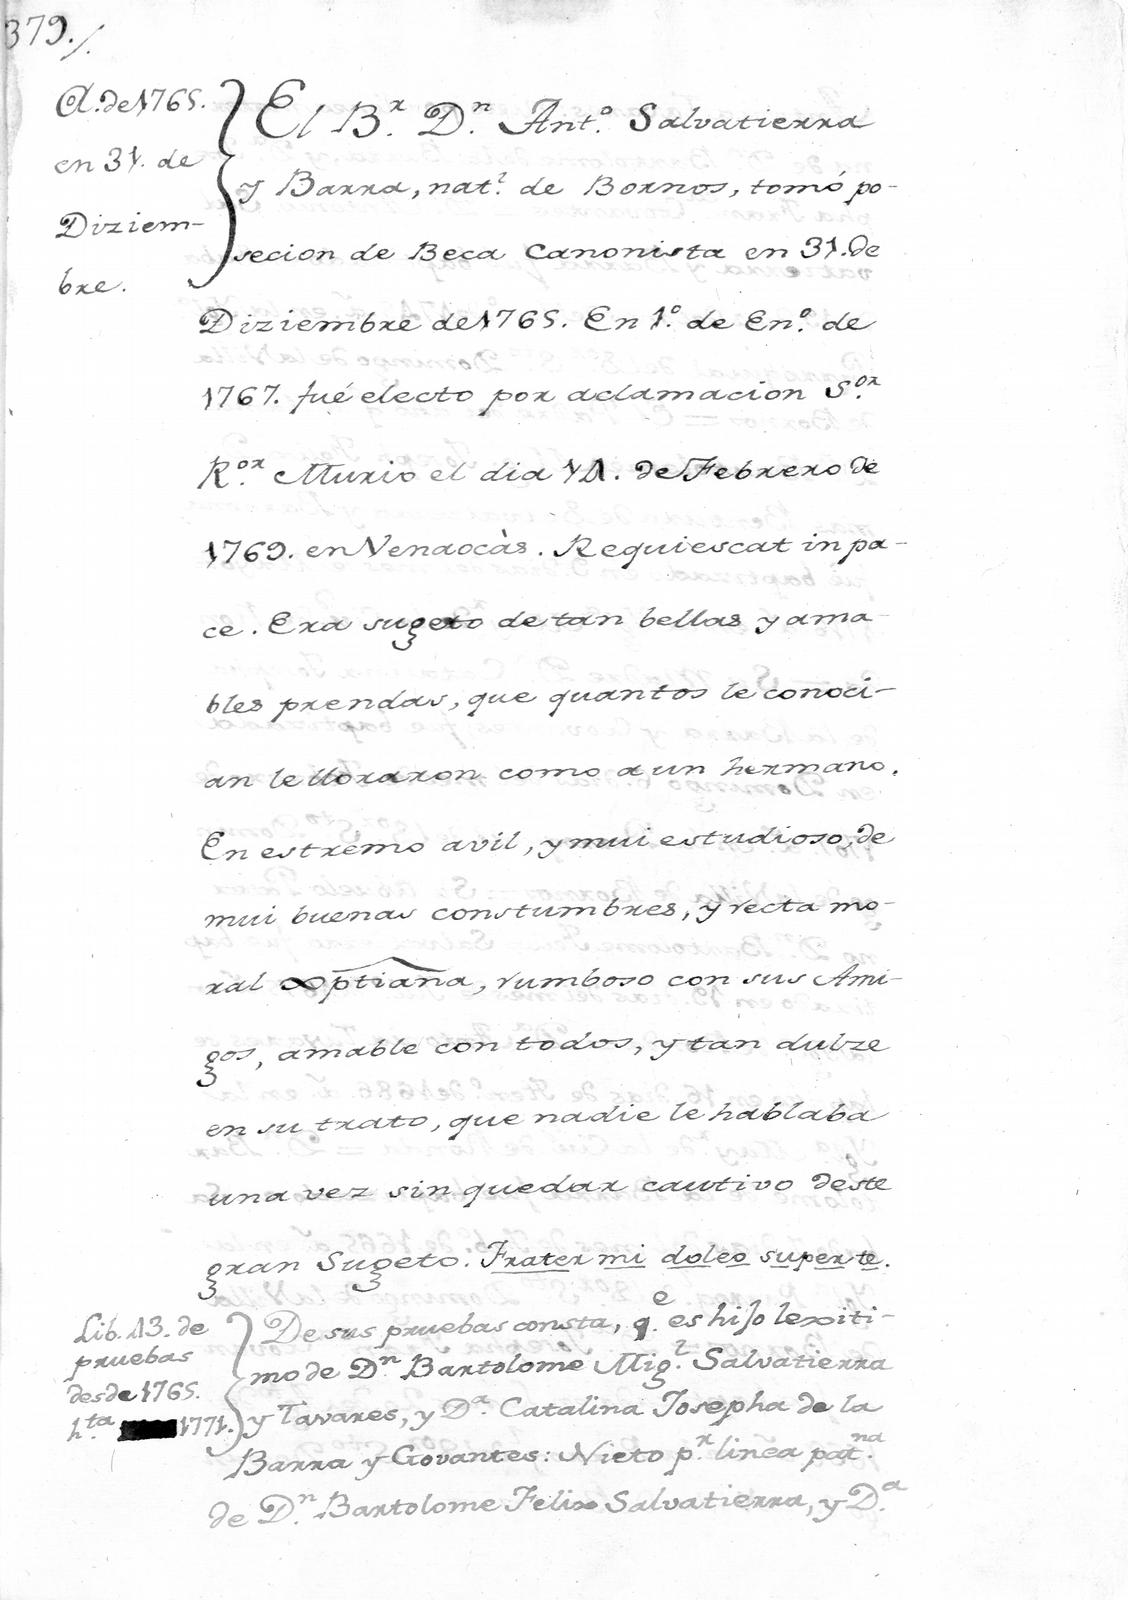 379./
A. de 1765.
en 31. de
Diziem-
bre.
El B.r D.n Ant.o Salvatierra
y Barra, nat.l de Bornos, tomó po-
secion de Beca Canonista en 31. de
Diziembre de 1765. En 1.o de En.o de
1767. fué electo por aclamacion S.or
R.or Murio el dia de Febrero de
1769. en . Requiescat in pa-
ce. Era sugeto de tan bellas y ama-
bles prendas, que quantos le conoci-
an le lloraron como a un hermano.
En estremo avil, y mui estudioso, de
mui buenas constumbres, y recta mo-
ral Xptiana, rumboso con sus Ami-
gos, amable con todos, y tan dulze
en su trato, que nadie le hablaba
una vez sin quedar cautivo deste
gran Sugeto. Frater mi doleo super te.
Lib. 13. de
pruebas
desde 1765.
h.ta 1771.
De sus pruebas consta, q.e es hijo lexiti-
mo de D.n Bartolome Mig.l Salvatierra
y Tavares, y D.a Catalina Josepha de la
Barra y Govantes: Nieto p.r linea pat.na
de D.n Bartolome Felix Salvatierra, y D.a